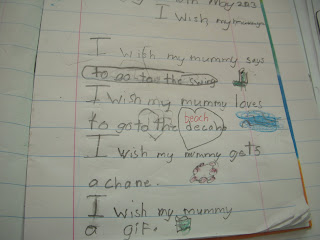 May 2013
I Wish my mummy
I wish my mummy says
to go to the swing
I Wish my mummy loves
to go to the decah
beach
I wish my mummy gets
a chane.
I wish my mummy
a gif.